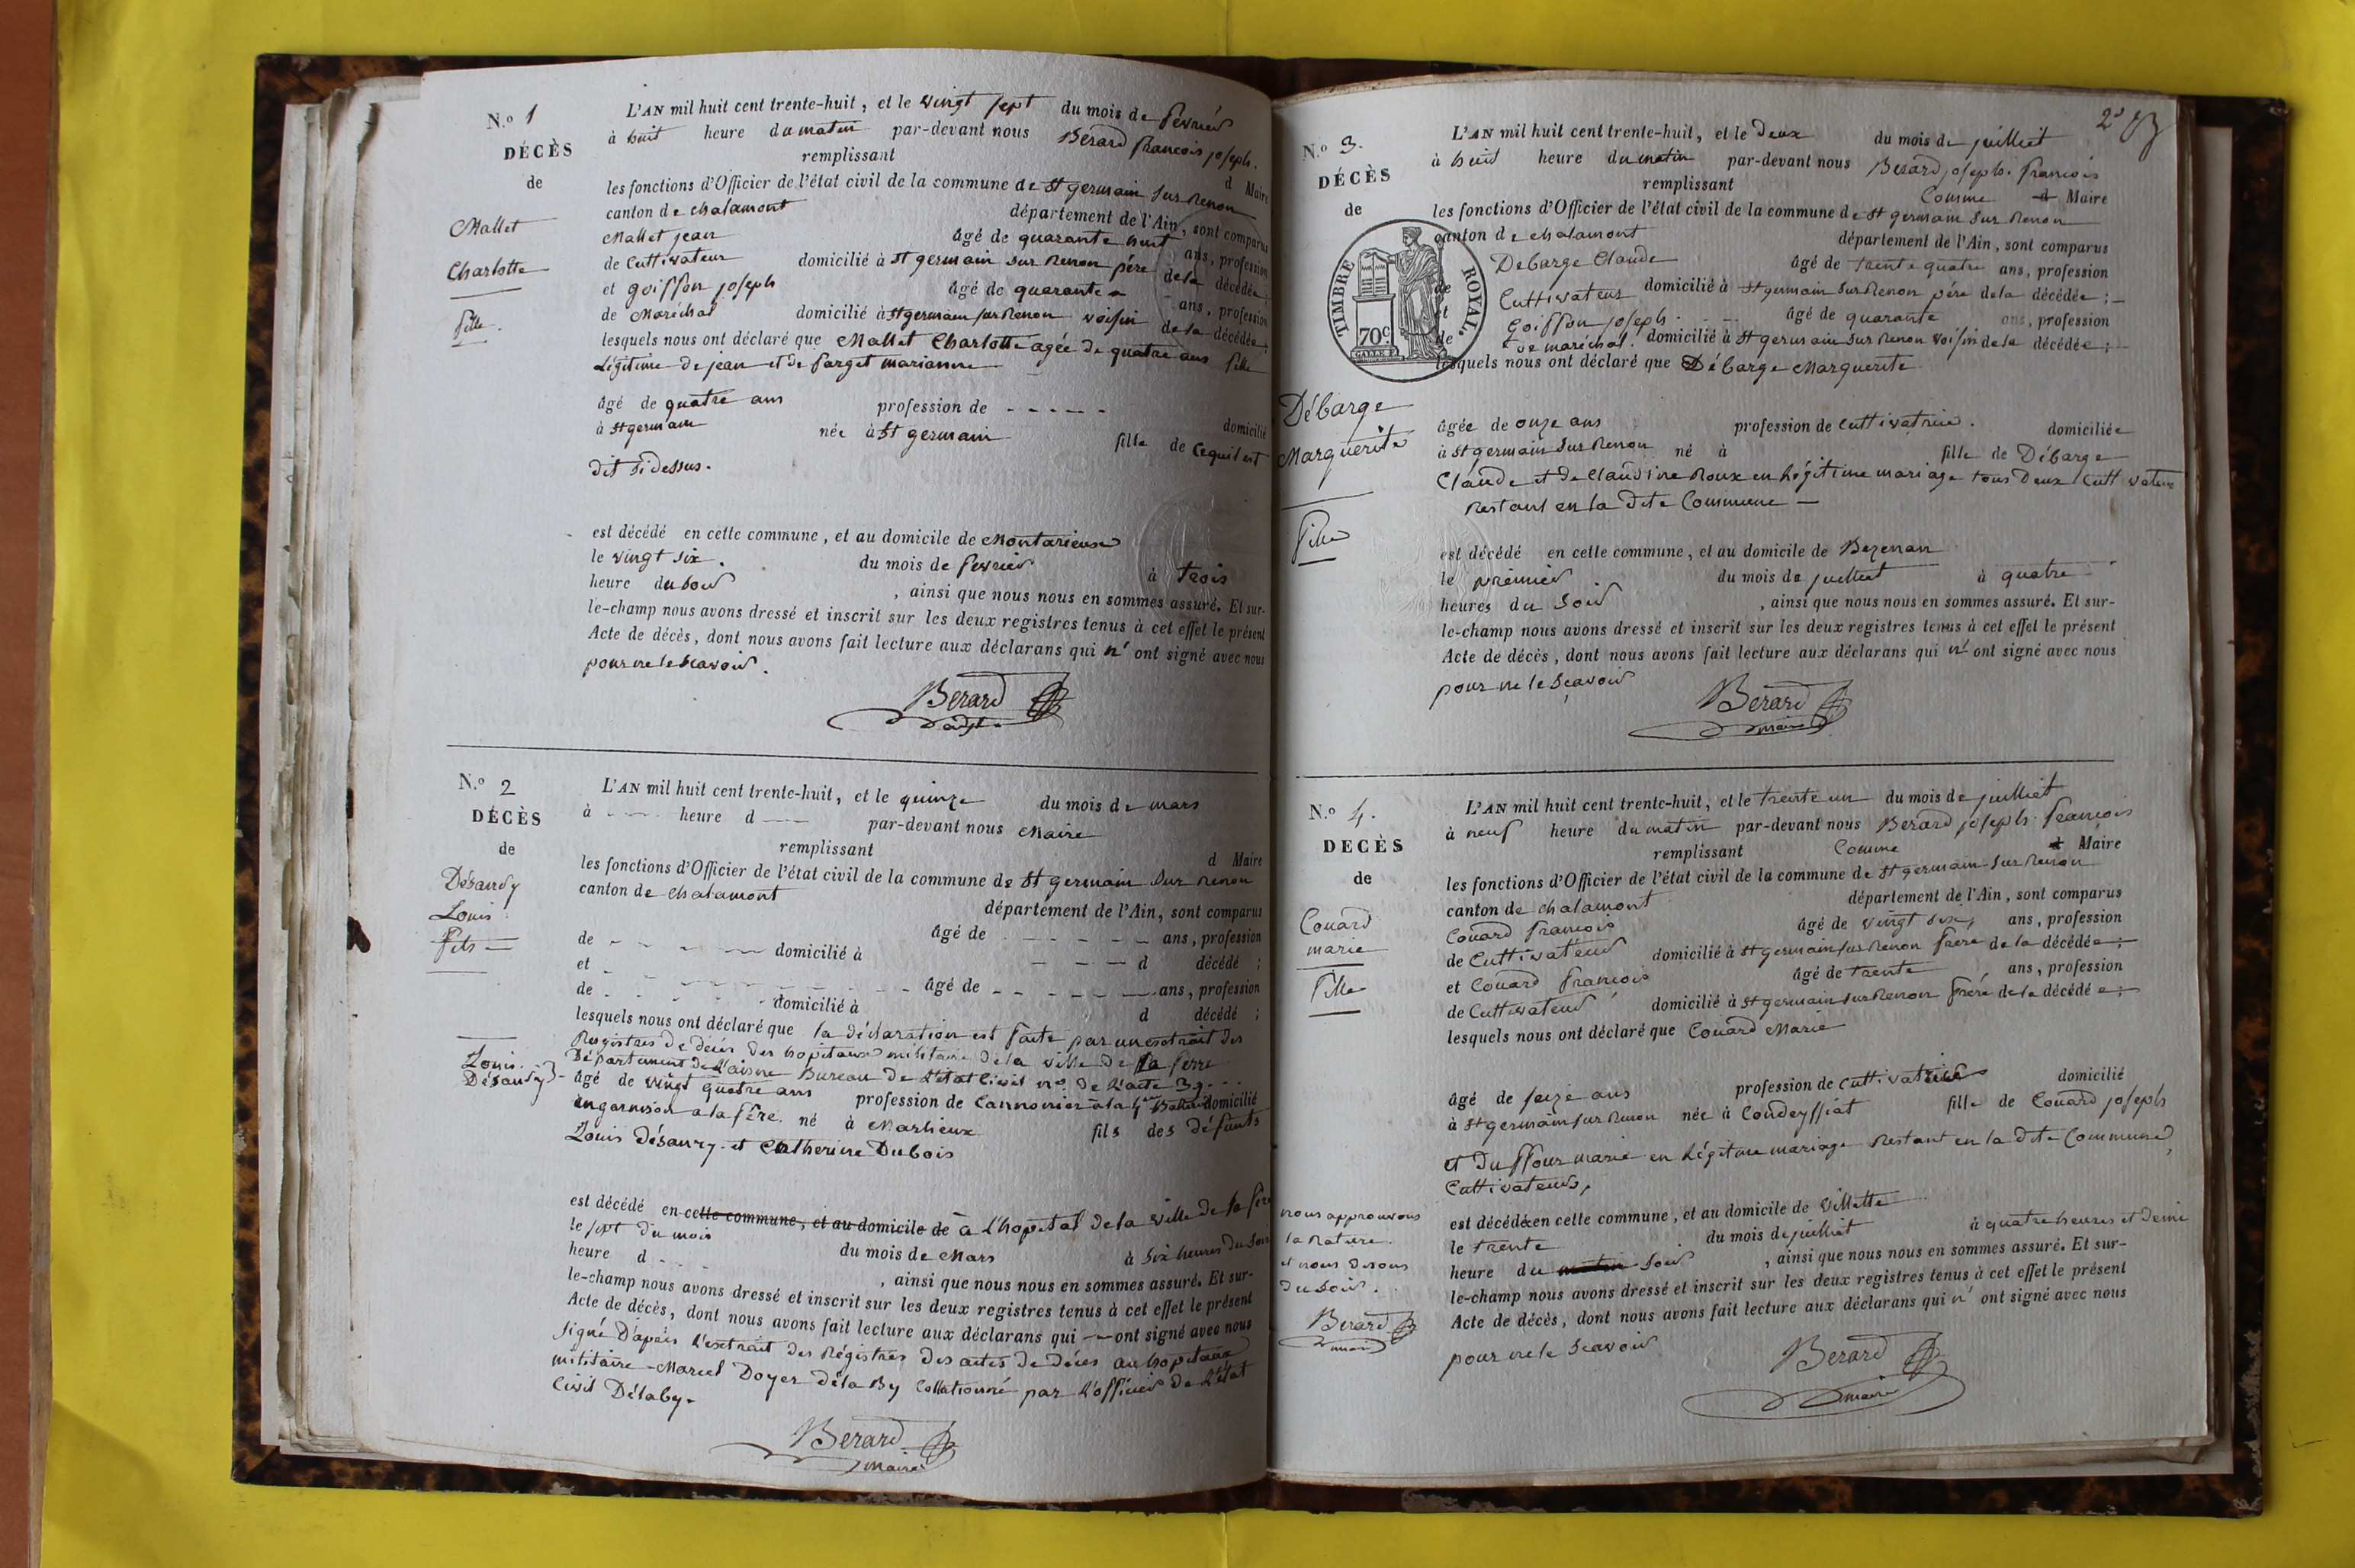 N.o 1
DÉCÈS
de
Mallet
Charlotte
fille.
L'AN mil huit cent trente-huit, et le vingt sept du mois de février
à huit heure du matin par-devant nous Bérard francois joseph.
remplissant d Maire
les fonctions d'Officier de l'état civil de la commune de St germain sur Renon
canton de chalamont département de l'Ain, sont comparus
Mallet jean âgé de quarante huit ans, profession
de Cuttivateur domicilié à St germain sur Renon pére de la décédée;
et goiffon joseph âgé de quarante ans, profession
de Maréchal domicilié à St germain sur Renon voisin de la décédée;
lesquels nous ont déclaré que Mallet Charlotte agée de quatre ans fille
Légitime de jean et de farget marianne
âgé de quatre ans profession de - - - - - domicilié
à St germain née à St germain fille de Cequil est
dit si dessus.
est décédé en cette commune, et au domicile de Montarieux
le vingt six. du mois de fevrier à trois
heure du soir, ainsi que nous nous en sommes assuré. Et sur-
le-champ nous avons dressé et inscrit sur les deux registres tenus à cet effet le présent
Acte de décès, dont nous avons fait lecture aux déclarans qui n' ont signé avec nous
pour ne le scavoir.
Berard
adjt
N.o 2
DÉCÈS
de
Désaury
Louis
fils
L'AN mil huit cent trente-huit, et le quinze du mois de mars
à - - - heure d - - - par-devant nous Maire
remplissant d Maire
les fonctions d'Officier de l'état civil de la commune de St germain sur renon
canton de chalamont département de l'Ain, sont comparus
âgé de - - - - - ans, profession
de - - - - - domicilié à - - - d décédé;
et - - - - - âgé de - - - - - ans, profession
de - - - - - domicilié à d décédé;
lesquels nous ont déclaré que la déclaration est faite par un extrait des
Registres de décès des hopitaux militaire de la ville de la ferre
Département de L'aisne Bureau de L'état Civil no de L'acte 39 - - -
Louis
Désaury
âgé de vingt quatre ans profession de Cannonier à la 4me Batterie domicilié
en garnison a la fère. né à Marlieux fils des défunts
Louis désaury et Catherine Dubois
est décédé en cette commune, et au domicile de à L'hopital de la ville de la fère
le sept du mois du mois de Mars à six heures du soir
heure d - - -, ainsi que nous nous en sommes assuré. Et sur-
le-champ nous avons dressé et inscrit sur les deux registres tenus à cet effet le présent
Acte de décès, dont nous avons fait lecture aux déclarans qui - - ont signé avec nous
signé D'après L'extrait des Régistres des actes de décès au hopitaux
militaire - Marcel Doyer déla By Collationné par L'officier de L'état
Civil Délaby.
Berard
Maire
2
N.o 3.
DÉCÈS
de
TIMBRE ROYAL.
70c.
Débarge
Marguerite
fille
L'AN mil huit cent trente-huit, et le Deux du mois de juilliet
à huit heure du matin par-devant nous Berard joseph. francois
remplissant Comme d Maire
les fonctions d'Officier de l'état civil de la commune de St germain sur Renon
canton de chalamont département de l'Ain, sont comparus
Debarge Claude âgé de trente quatre ans, profession
de Cuttivateur domicilié à St germain sur Renon pére de la décédée;
et Goiffon joseph. âgé de quarante ans, profession
de de maréchal. domicilié à St germain sur Renon voisin de la décédée;
lesquels nous ont déclaré que Débarge Marguerite
âgée de onze ans profession de Cuttivatrice. domiciliée
à St germain sur Renon né à fille de Débarge
Claude et de Claudine Roux en Légitime mariage tous Deux Cuttivateur
Restant en la Dite Commune
est décédé en cette commune, et au domicile de Bezenan
le prémier du mois de juilliet à quatre
heures du soir, ainsi que nous nous en sommes assuré. Et sur-
le-champ nous avons dressé et inscrit sur les deux registres tenus à cet effet le présent
Acte de décès, dont nous avons fait lecture aux déclarans qui n' ont signé avec nous
pour ne le scavoir
Berard
maire
N.o 4.
DÉCÈS
de
Couard
marie
fille
L'AN mil huit cent trente-huit, et le trente un du mois de juilliet
à neuf heure du matin par-devant nous Berard joseph francois
remplissant Comme d Maire
les fonctions d'Officier de l'état civil de la commune de St germain sur Renon
canton de chalamont département de l'Ain, sont comparus
Couard francois âgé de vingt six, ans, profession
de Cuttivateur domicilié à St germain sur Renon frére de la décédée;
et Couard francois âgé de trente ans, profession
de Cuttivateur domicilié à St germain sur Renon frére de la décédée;
lesquels nous ont déclaré que Couard Marie
âgé de seize ans profession de Cuttivatrice domicilié
à St germain sur Renon née à Condeyssiat fille de Couard joseph
et Duffour marie en Légitime mariage Restant en la Dite Commune,
Cuttivateurs,
est décédée en cette commune, et au domicile de Villette
le trente du mois de juilliet à quatre heures et demie
heure du matin soir, ainsi que nous nous en sommes assuré. Et sur-
le-champ nous avons dressé et inscrit sur les deux registres tenus à cet effet le présent
Acte de décès, dont nous avons fait lecture aux déclarans qui n' ont signé avec nous
pour ne le scavoir
Berard
maire
nous approuvons
la Rature.
et nous disons
du soir.
Berard
maire